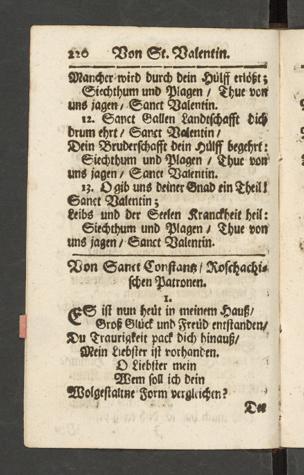 220 Von St. Valentin.
Mancher wird durch dein Hülff erlößt;
Siechthum und Plagen / Thue von
uns jagen / Sanct Valentin.
12. Sanct Gallen Landtschafft dich
drum ehrt / Sanct Valentin /
Dein Bruderschafft dein Hülff begehrt:
Siechthum und Plagen / Thue von
uns jagen / Sanct Valentin.
13. O gib uns deiner Gnad ein Theil!
Sanct Valentin;
Leibs und der Seelen Kranckheit heil:
Siechthum und Plagen / Thue von
uns jagen / Sanct Valentin.
Von Sanct Constantz / Roschachi-
schen Patronen.
1.
ES ist nun heüt in meinem Hauß /
Groß Glück und Freüd entstanden /
Du Traurigkeit pack dich hinauß /
Mein Liebster ist vorhanden.
O Liebster mein
Wem soll ich dein
Wolgestaltne Form vergleichen?
Der